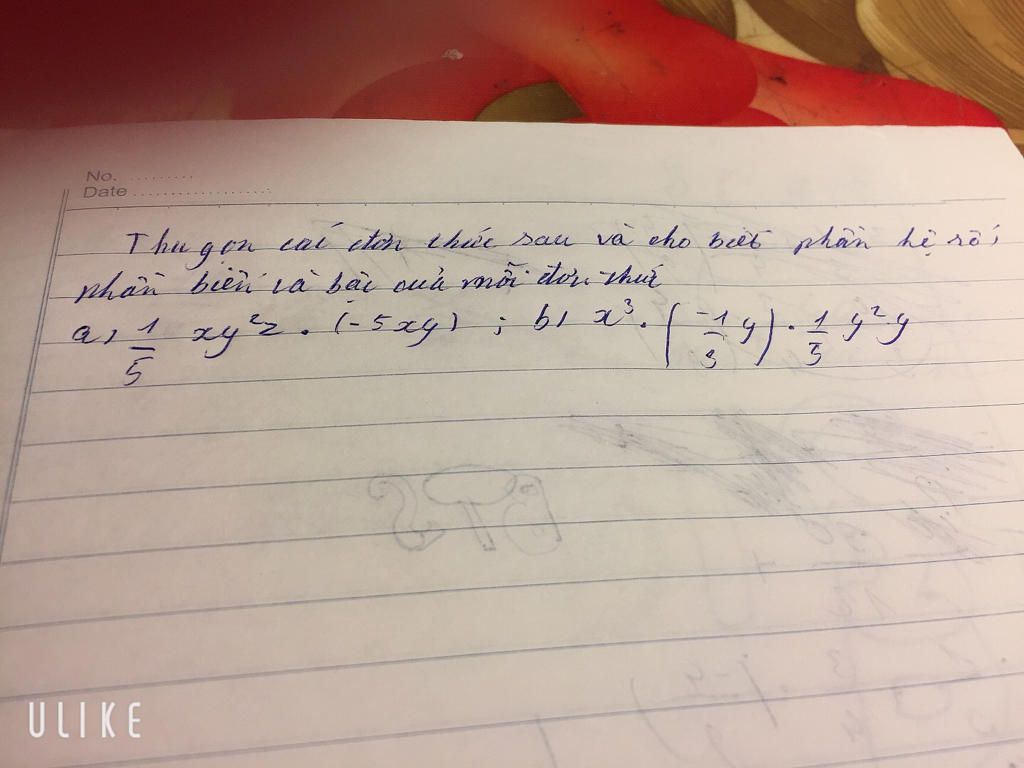 No. .........
Date ...................
Thu gọn các đơn thức sau và cho biết phần hệ số,
phần biến và bậc của mỗi đơn thức
a, 1/5 xy²z . (-5xy) ; b) x³ . (-1/3 y) . 1/5 y²y
BTS
ULIKE